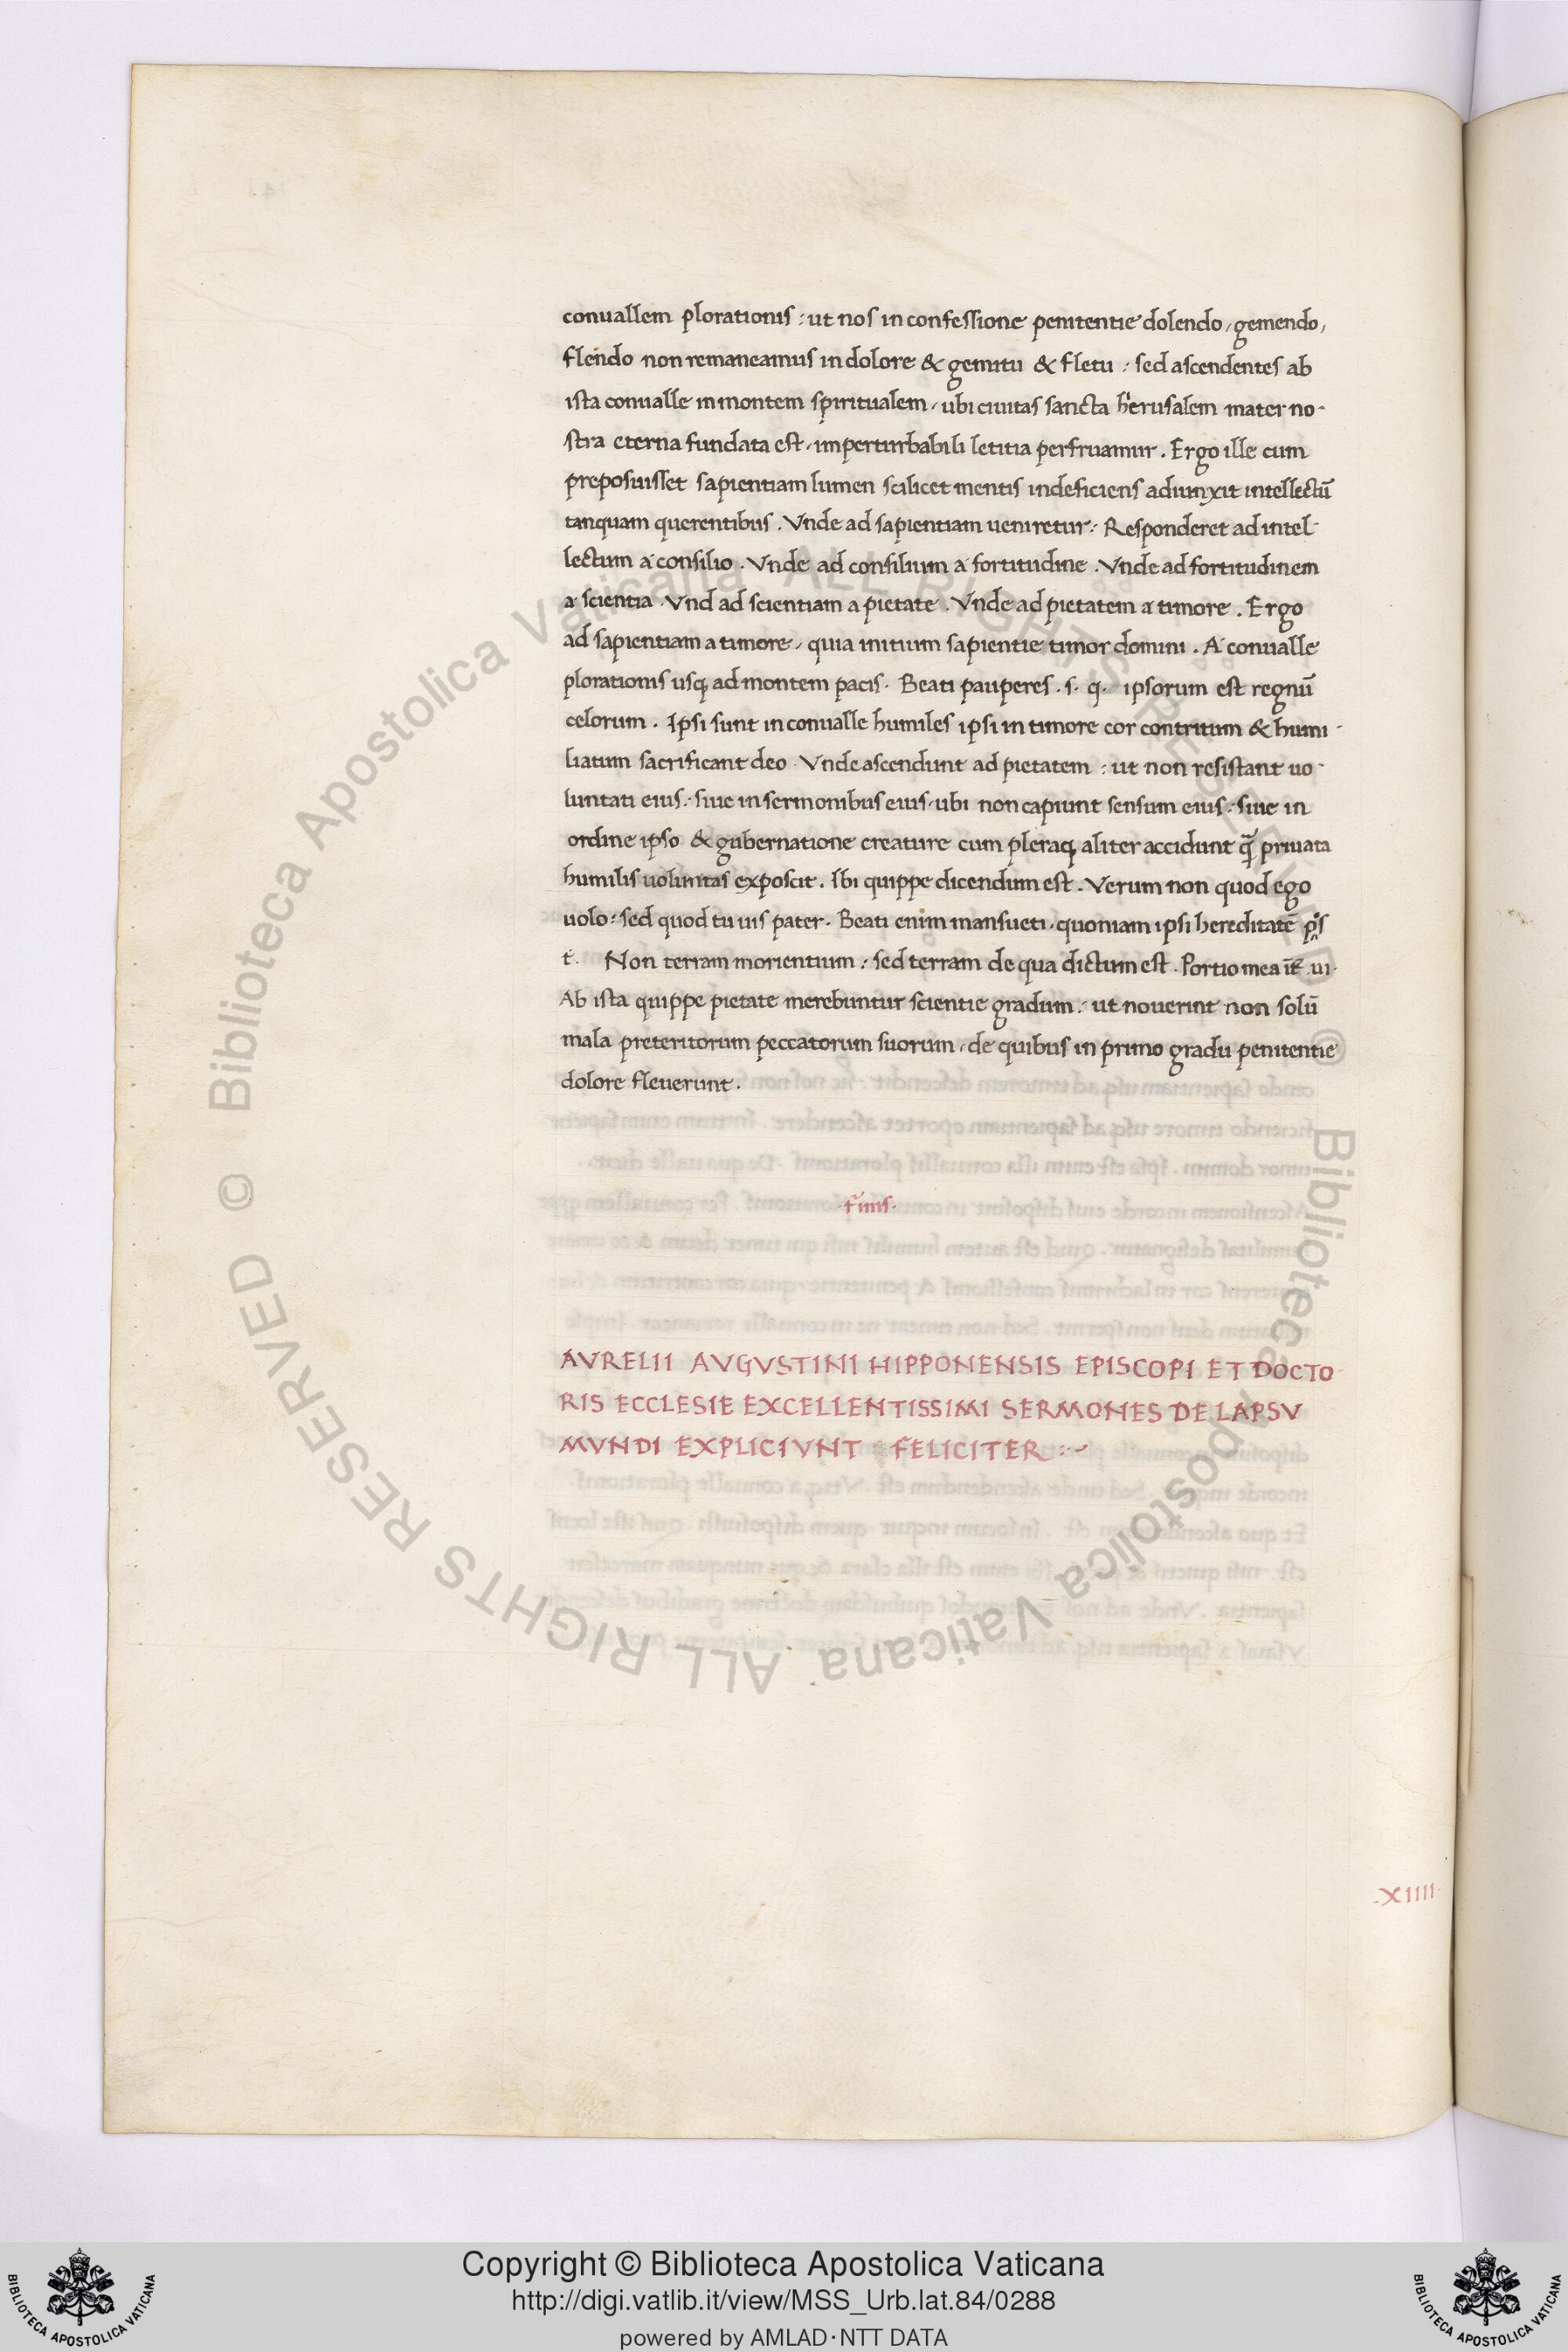 conuallem plorationis : ut nos in confessione penitentie dolendo, gemendo,
flendo non remaneamus in dolore & gemitu & fletu : sed ascendentes ab
ista conualle in montem spiritualem, ubi ciuitas sancta hierusalem mater no-
stra eterna fundata est, imperturbabili letitia perfruamur. Ergo ille cum
preposuisset sapientiam lumen scilicet mentis indeficiens adiunxit intellectū
tanquam querentibus. Vnde ad sapientiam ueniretur: Responderet ad intel-
lectum a consilio. Vnde ad consilium a fortitudine. Vnde ad fortitudinem
a scientia. Vnd ad scientiam a pietate. Vnde ad pietatem a timore. Ergo
ad sapientiam a timore, quia initium sapientie timor domini. A conualle
plorationis usq; ad montem pacis. Beati pauperes .s. q. ipsorum est regnū
celorum. Ipsi sunt in conualle humiles ipsi in timore cor contritum & humi-
liatum sacrificant deo. Vnde ascendunt ad pietatem : ut non resistant uo-
luntati eius: siue in sermonibus eius, ubi non capiunt sensum eius: siue in
ordine ipso & gubernatione creature cum pleraq; aliter accidunt q̃ priuata
humilis uoluntas exposcit. Ibi quippe dicendum est. Verum non quod ego
uolo: sed quod tu uis pater. Beati enim mansueti, quoniam ipsi hereditatē
t. Non terram morientium: sed terram de qua dictum est. Portio mea ui.
Ab ista quippe pietate merebuntur scientie gradum: ut nouerint non solū
mala preteritorum peccatorum suorum, de quibus in primo gradu penitentie
dolore fleuerunt.
.finis.
AVRELII AVGVSTINI HIPPONENSIS EPISCOPI ET DOCTO
RIS ECCLESIE EXCELLENTISSIMI SERMONES DE LAPSV
MVNDI EXPLICIVNT FELICITER :~
.XIIII.
© Biblioteca Apostolica Vaticana ALL RIGHTS RESERVED
© Biblioteca Apostolica Vaticana ALL RIGHTS RESERVED
Copyright © Biblioteca Apostolica Vaticana
http://digi.vatlib.it/view/MSS_Urb.lat.84/0288
powered by AMLAD·NTT DATA
BIBLIOTECA APOSTOLICA VATICANA
BIBLIOTECA APOSTOLICA VATICANA